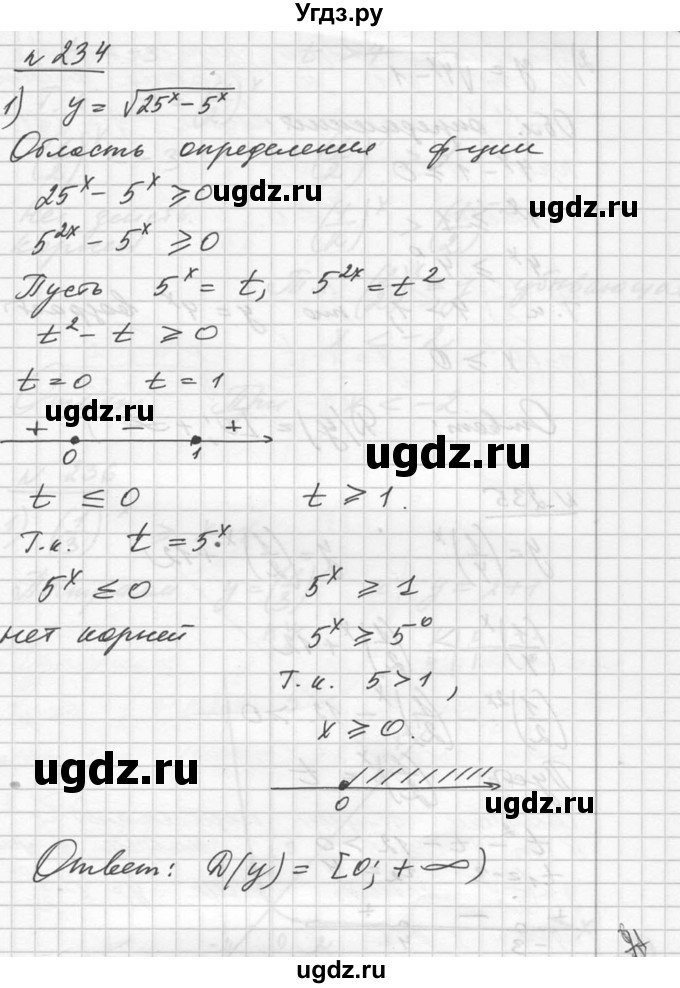 Угдз.ру
n 234
1) y = √(25^x − 5^x)
Область определения ф-ции
25^x − 5^x ⩾ 0
ugdz.ru
ugdz.ru
5^2x − 5^x ⩾ 0
Пусть 5^x = t, 5^2x = t^2
t^2 − t ⩾ 0
t = 0 t = 1
ugdz.ru
+ − +
ugdz.ru
0 1
t ≤ 0 t ⩾ 1.
Т.к. t = 5^x
5^x ≤ 0 5^x ⩾ 1
нет корней 5^x ⩾ 5^0
Т.к. 5 > 1,
x ⩾ 0.
ugdz.ru
0
ugdz.ru
Ответ: D(y) = [0; +∞)
ugdz.ru